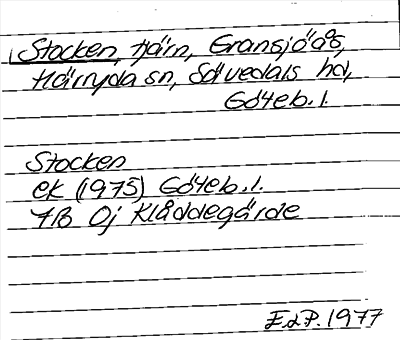 Stocken, tjärn, Gransjöås,
Härryda sn, Sävedals hd,
Göteb. l.
Stocken
ek (1975) Göteb. l.
7B Oj Klåddegärde
E.d P. 1977